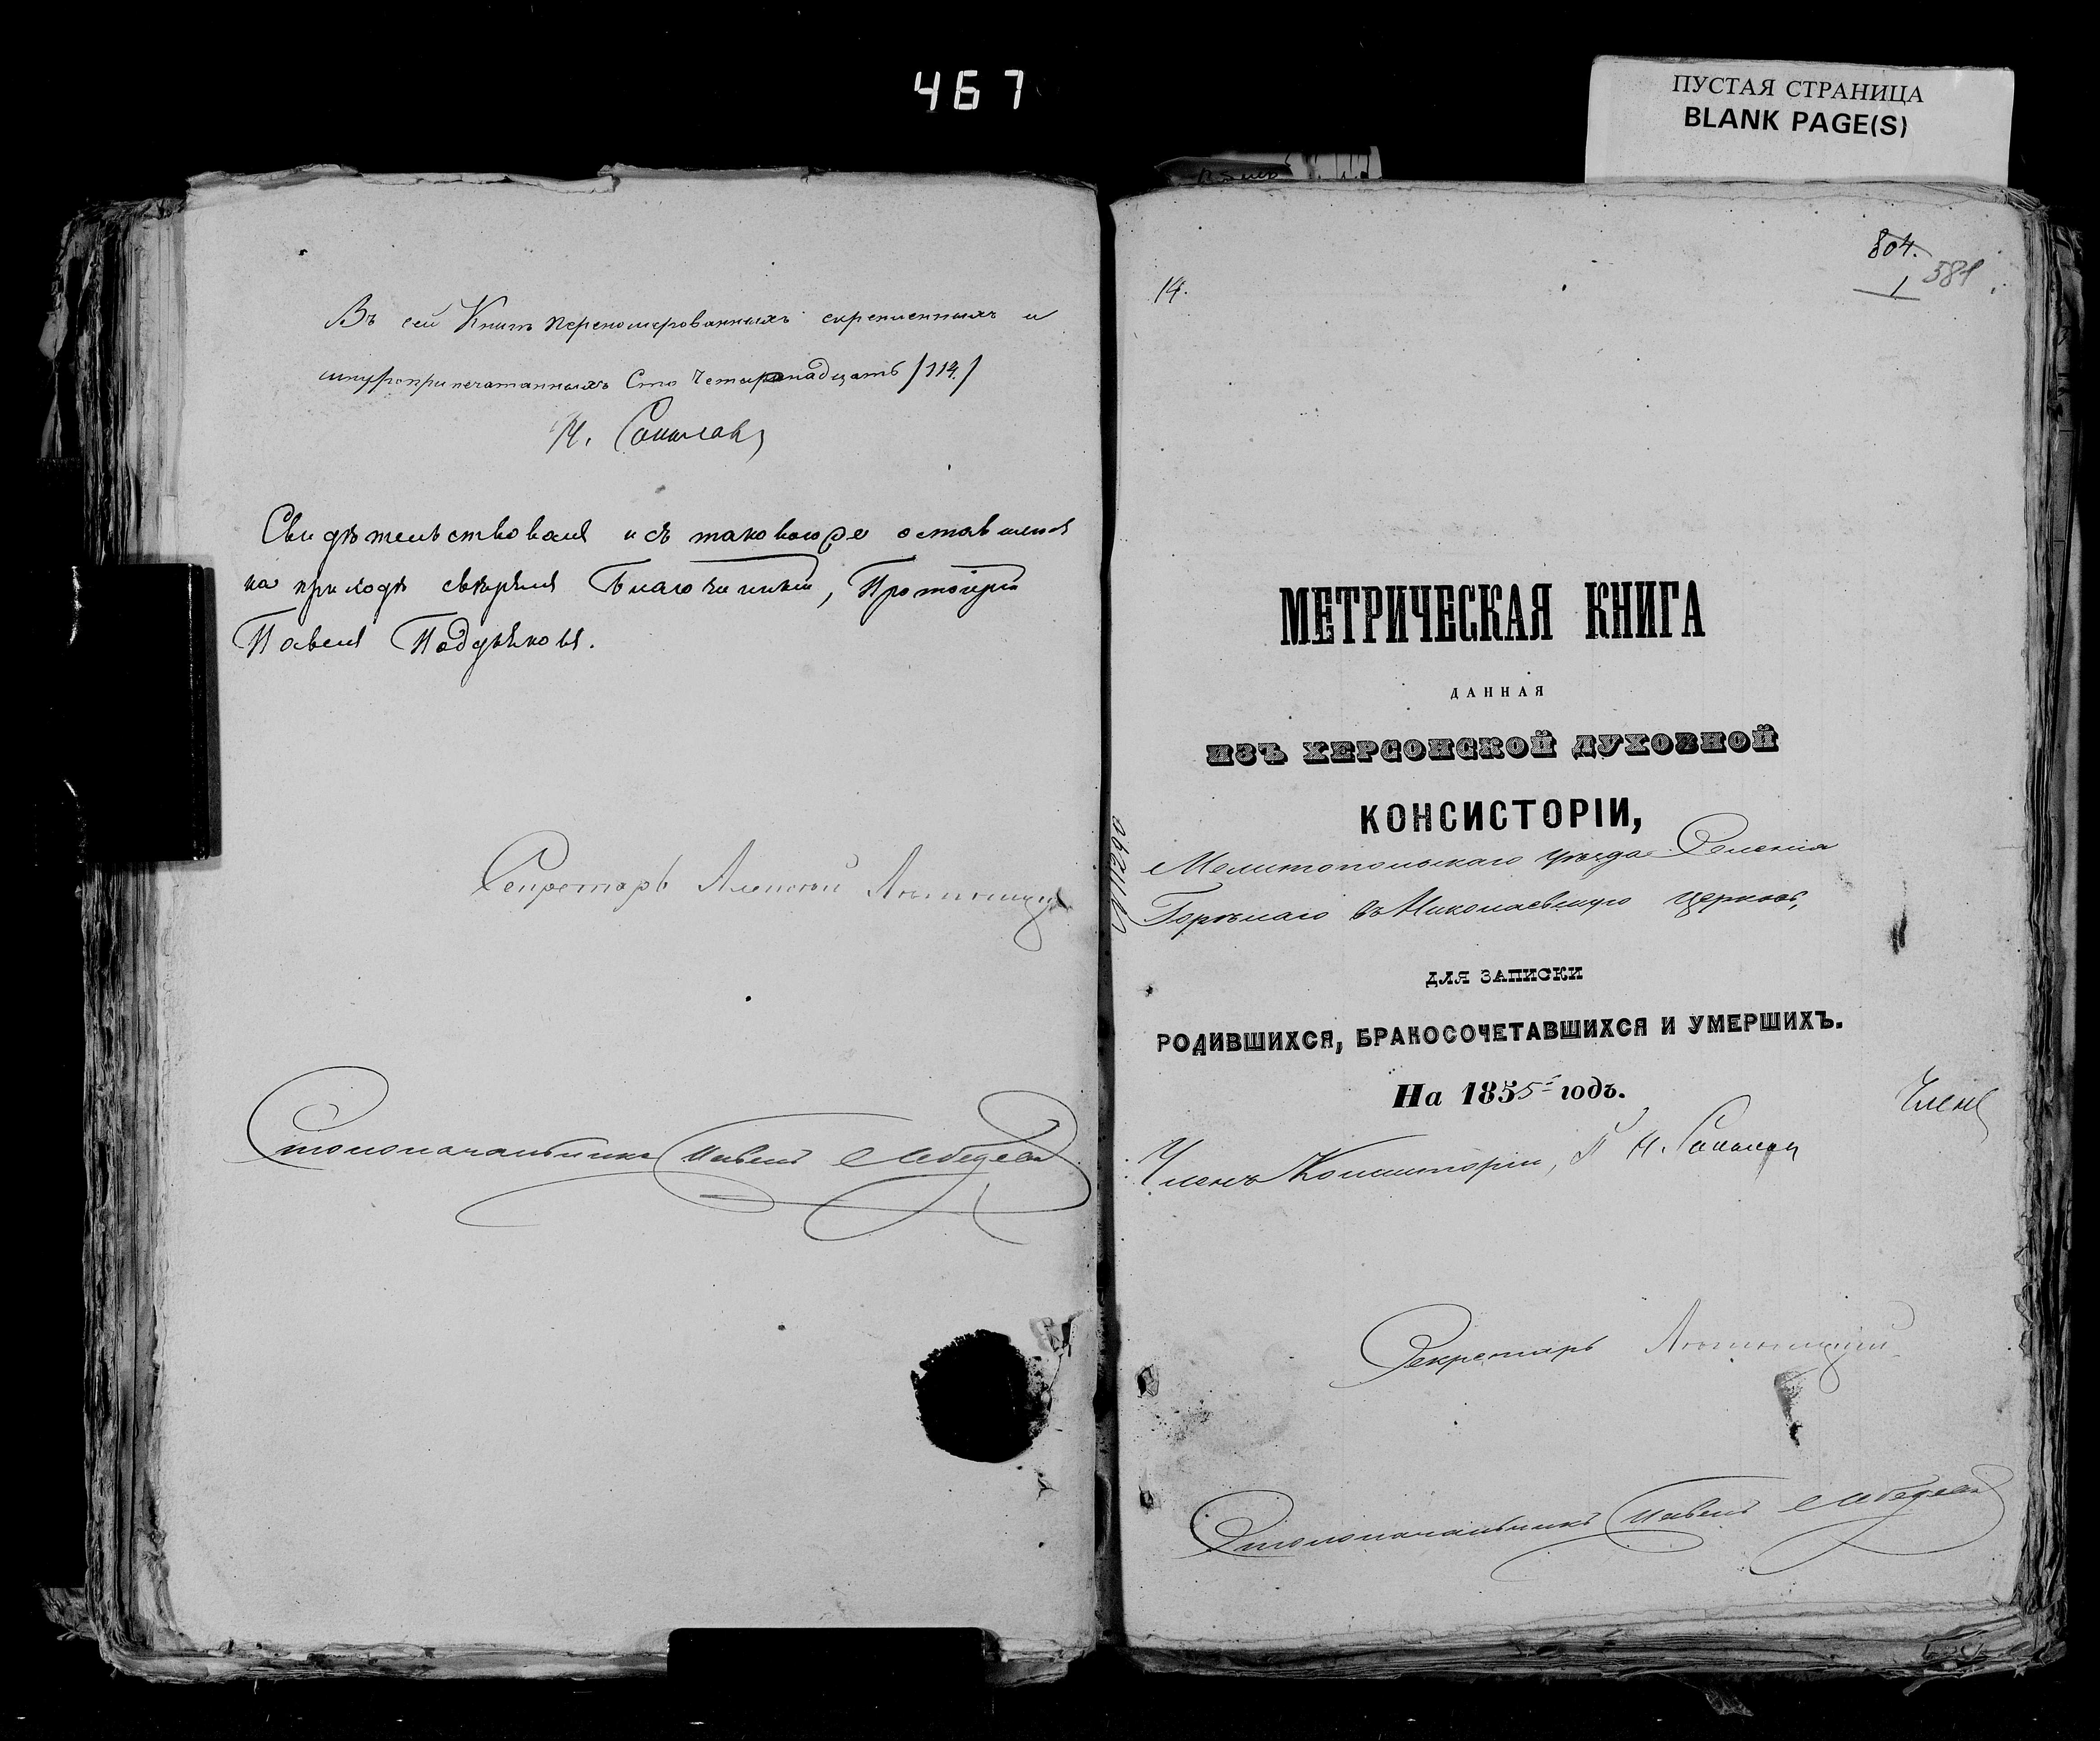 467
ПУСТАЯ СТРАНИЦА
BLANK PAGE(S)
Въ сей Книгѣ перенумерованныхъ скрепленныхъ и
шнуроприпечатанныхъ Сто Четырнадцать /114./
Свидѣтельствовалъ и съ таковою же оставшеюся
на приходѣ свѣрялъ Благочинный, Протоіерей
Павелъ
Секретарь Алексѣй
Столоначальникъ Павелъ Лебедевъ
804.
1
581
14.
МЕТРИЧЕСКАЯ КНИГА
ДАННАЯ
ИЗЪ ХЕРСОНСКОЙ ДУХОВНОЙ
КОНСИСТОРІИ,
Мелитопольскаго уѣзда Селенія
Горѣлаго въ Николаевскую церковь,
ДЛЯ ЗАПИСКИ
РОДИВШИХСЯ, БРАКОСОЧЕТАВШИХСЯ И УМЕРШИХЪ.
На 1855 годъ.
Членъ
Членъ Консисторіи,
Секретарь
Столоначальникъ Павелъ Лебедевъ